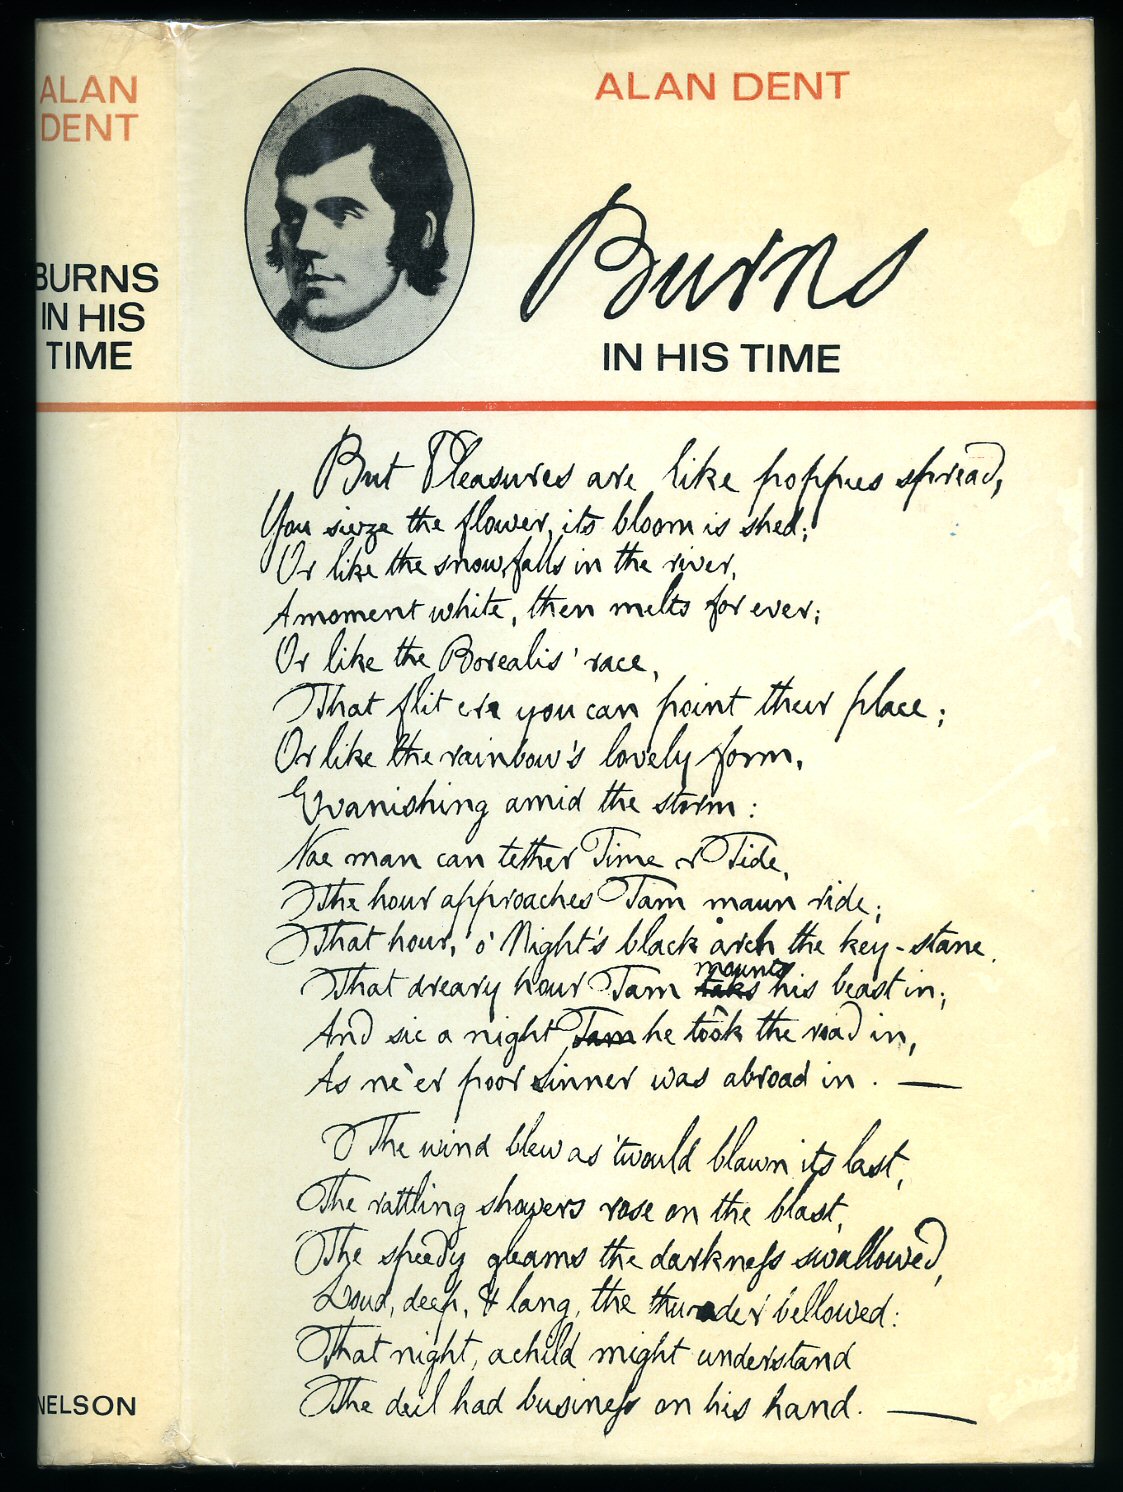 ALAN
DENT
BURNS
IN HIS
TIME
NELSON
ALAN DENT
Burns
IN HIS TIME
But Pleasures are like poppies spread,
You sieze the flower, its bloom is shed;
Or like the snow, falls in the river,
A moment white, then melts for ever;
Or like the Borealis' race,
That flit ere you can point their place;
Or like the rainbow's lovely form,
Evanishing amid the storm:
Nae man can tether Time or Tide,
The hour approaches Tam maun ride;
That hour, o' Night's black arch the key-stane,
That dreary hour Tam taks mounts his beast in;
And sic a night Tam he took the road in,
As ne'er poor sinner was abroad in. —
The wind blew as 'twould blawn its last,
The rattling showers rose on the blast,
The speedy gleams the darkneſs swallowed,
Loud, deep, & lang, the thunder bellowed:
That night, a child might understand
The deil had busineſs on his hand. —